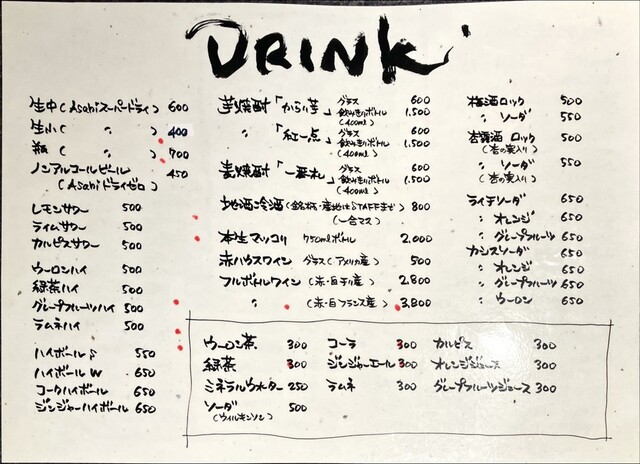 DRINK
生中(Asahiスーパードライ) 600
生小( 〃 ) 400
瓶( 〃 ) 700
ノンアルコールビール 450
(Asahiドライゼロ)
レモンサワー 500
ライムサワー 500
カルピスサワー 500
ウーロンハイ 500
緑茶ハイ 500
グレープフルーツハイ 500
ラムネハイ 500
ハイボール S 550
ハイボール W 650
コークハイボール 650
ジンジャーハイボール 650
芋焼酎「からり芋」グラス 600
飲みきりボトル 1,500
(400ml)
〃 「紅一点」グラス 600
飲みきりボトル 1,500
(400ml)
麦焼酎「一番札」グラス 600
飲みきりボトル 1,500
(400ml)
地酒冷酒(銘柄・産地はSTAFFまで) 800
(一合マス)
本生マッコリ 750mlボトル 2,000
赤ハウスワイン グラス(アメリカ産) 500
フルボトルワイン (赤・白チリ産) 2,800
〃 (赤・白フランス産) 3,800
梅酒ロック 500
〃 ソーダ 550
杏露酒 ロック 500
(杏の実入り)
〃 ソーダ 550
(杏の実入り)
ライチソーダ 650
〃 オレンジ 650
〃 グレープフルーツ 650
カシスソーダ 650
〃 オレンジ 650
〃 グレープフルーツ 650
〃 ウーロン 650
ウーロン茶 300
緑茶 300
ミネラルウォーター 250
ソーダ 500
(ウィルキンソン)
コーラ 300
ジンジャーエール 300
ラムネ 300
カルピス 300
オレンジジュース 300
グレープフルーツジュース 300